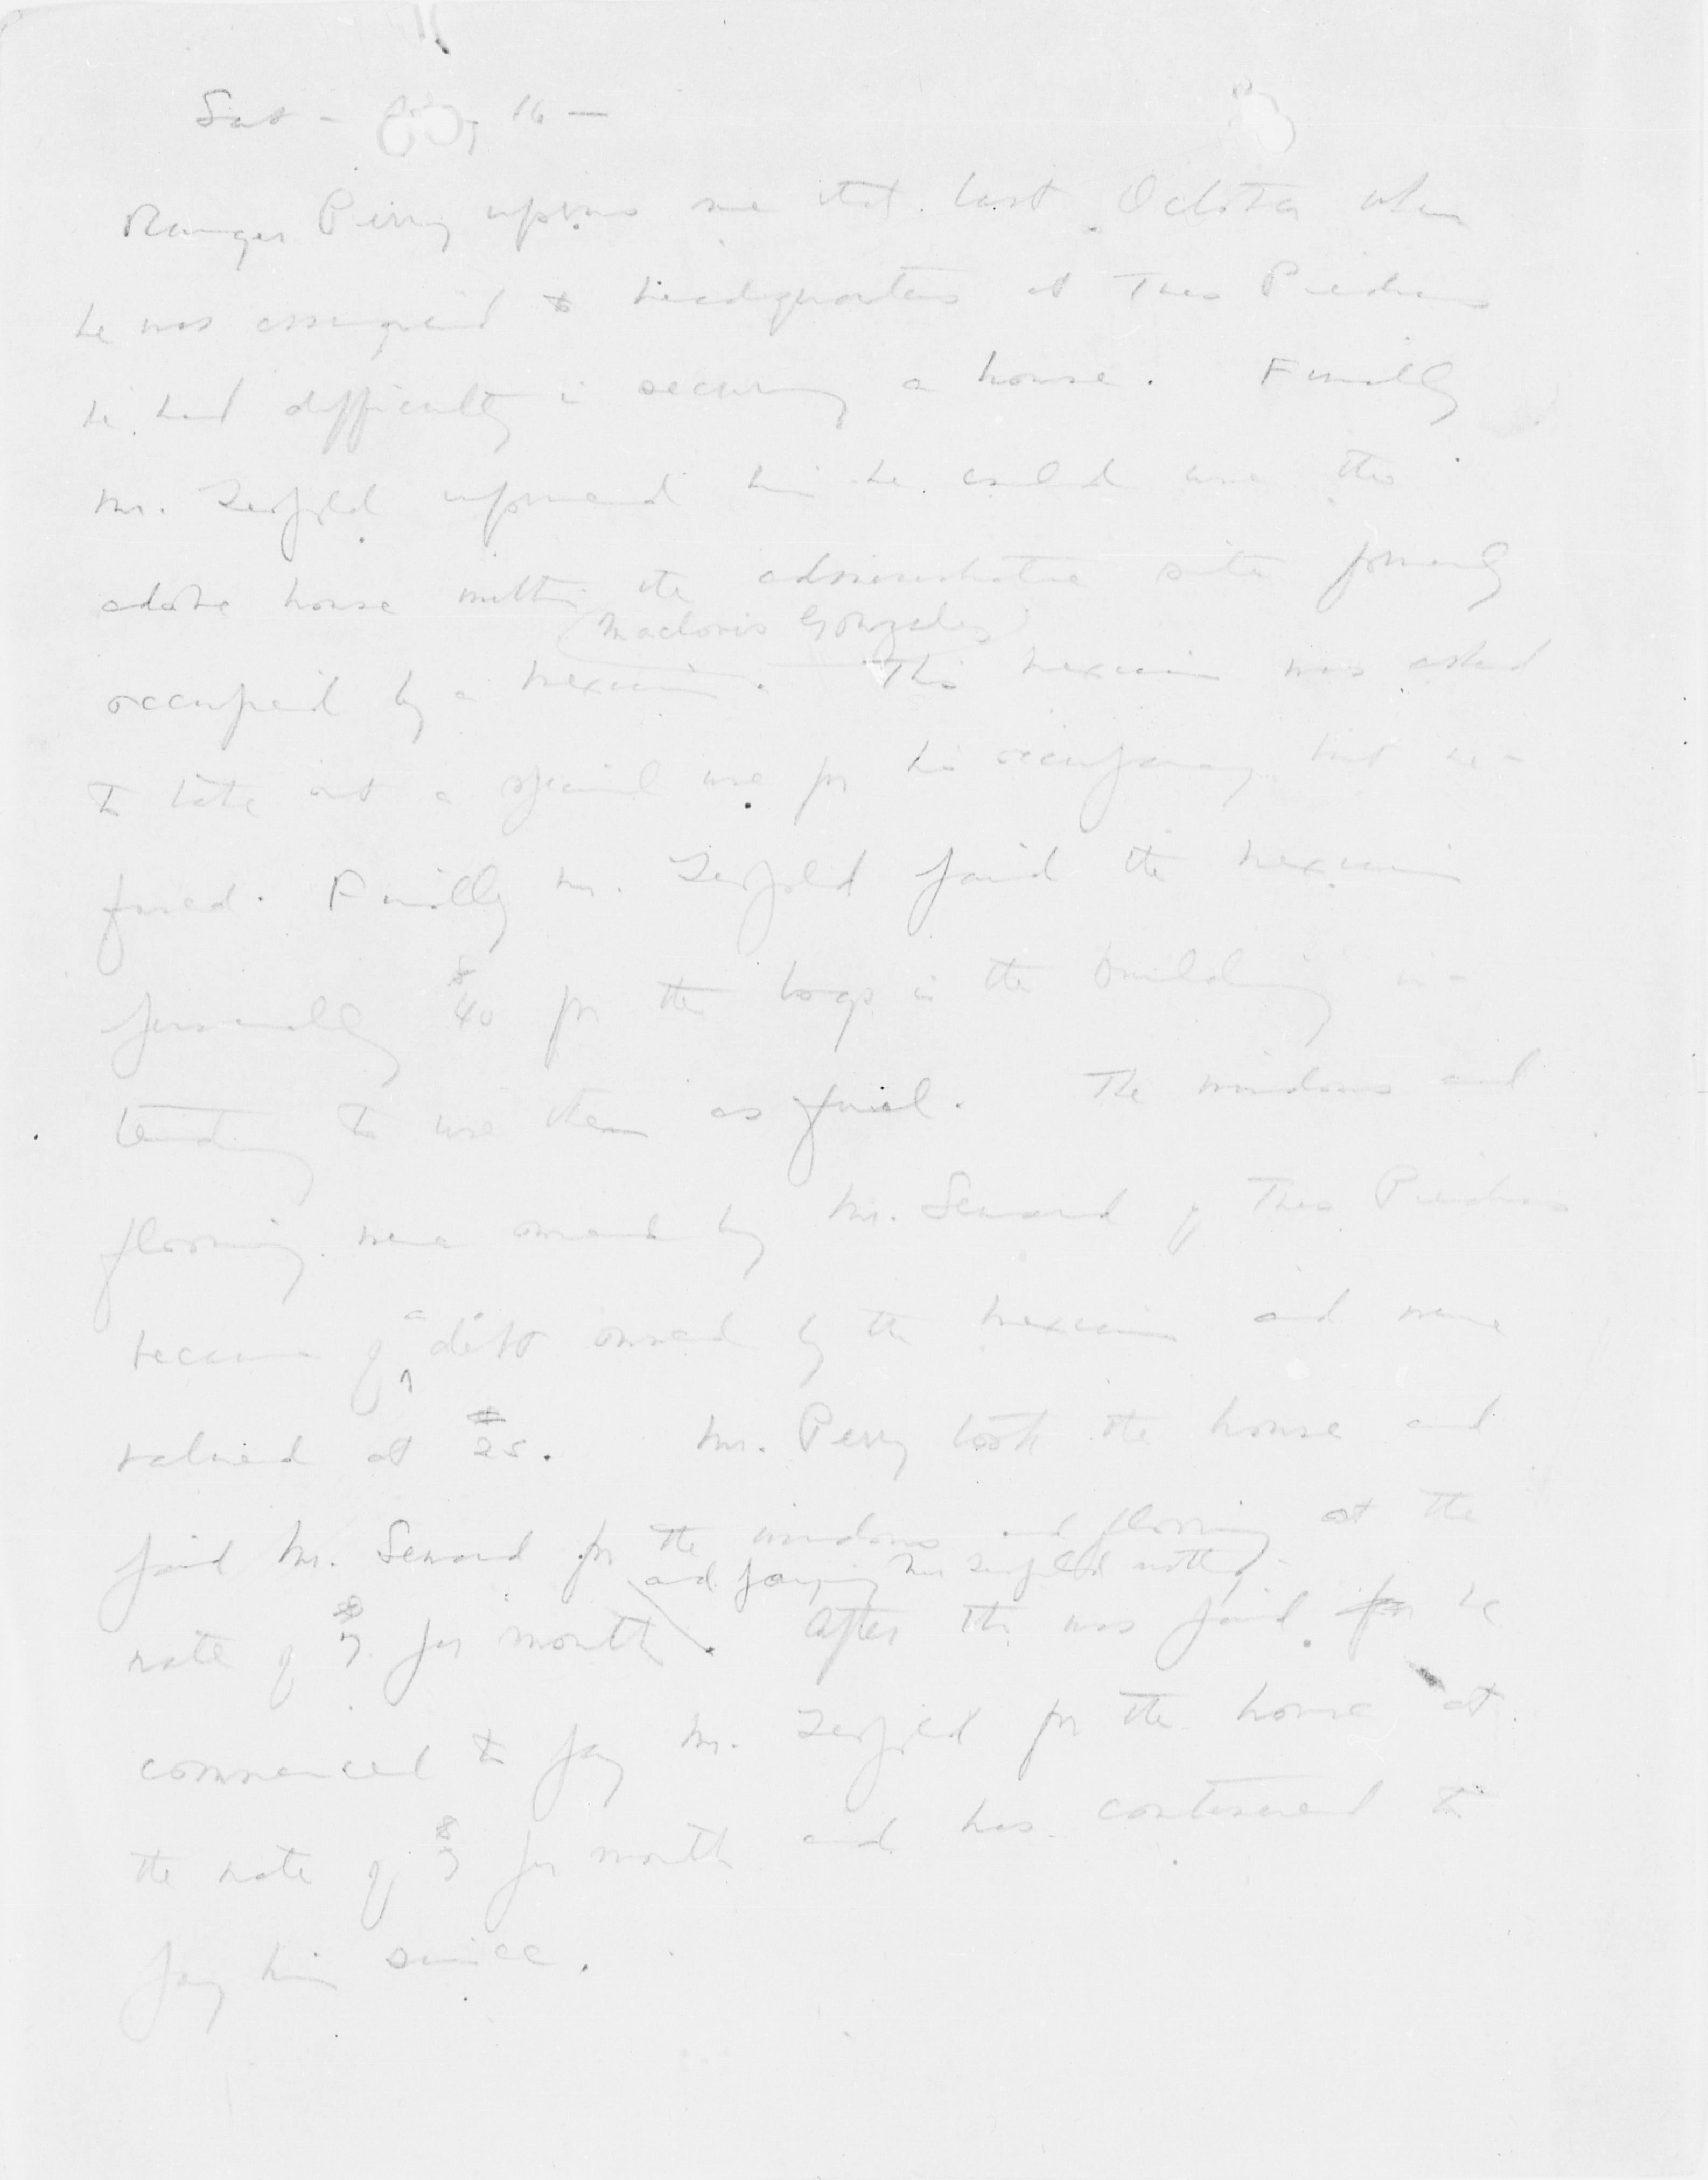 Sat - 16 -
Ranger Perry informs me that last October when
he was assigned to headquarters at Tres Piedras
he had difficulty in securing a house. Finally
Mr. informed him he could use the
adobe house within the administrative site formerly
(Maclovio Gonzales)
occupied by a Mexican. This Mexican was asked
to take out a special use for his occupancy but re-
fused. Finally Mr. paid the Mexican
personally $40 for the logs in the building in-
tending to use them as fuel. The windows and
flooring were owned by Mr. Seward of Tres Piedras
because of a debt owned by the Mexican and were
valued at $25. Mr. Perry took the house and
paid Mr. Seward for the windows and flooring at the
and paying Mr. nothing
rate of $5 per month. After this was paid he
commenced to pay Mr. for the house at
the rate of $5 per month and has continued to
pay him since.